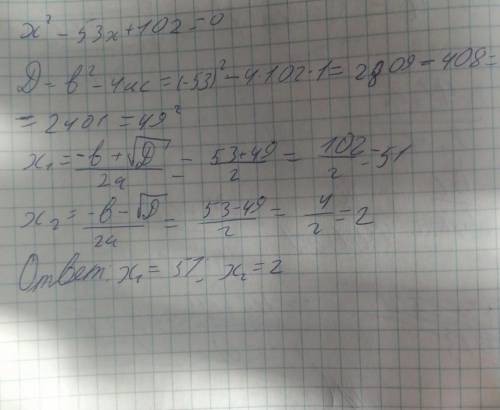 x² - 53x + 102 = 0
D = b² - 4ac = (-53)² - 4·102·1 = 2809 - 408 =
= 2401 = 49²
x₁ = (-b + √D)/2a = (53+49)/2 = 102/2 = 51
x₂ = (-b - √D)/2a = (53-49)/2 = 4/2 = 2
Ответ: x₁ = 51. x₂ = 2